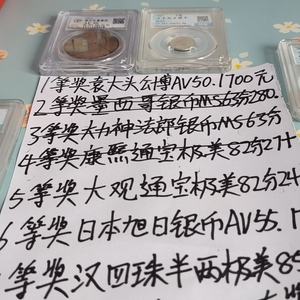 1等奖袁大头公博AV50.1700元
2等奖墨西哥银币MS63分280.
3等奖大力神法郎银币MS63分
4等奖康熙通宝极美82分27
5等奖大观通宝极美82分24
6等奖日本旭日银币AV55.1
等奖汉四珠半两极美85